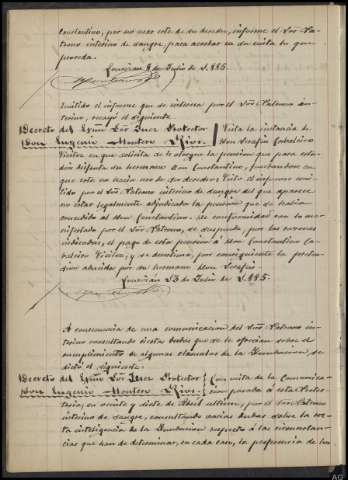 Constantino, por no usar este de su derecho, informe el Sor. Patrono interino de sangre, para acordar en su vista lo que proceda.
Lourizán 8 de Julio de 1.885.
Emitido el informe que se interesa por el Sor. Patrono interino, recayó el siguiente
Decreto del Exmo Sor Juez Protector
Don Eugenio Montero Rios.
Vista la instancia de
Don Serafin
en que solicita se le otorgue la pension que para estudios disfruta su hermano Don Constantino, fundandose en
que este no hacia uso de su derecho: Visto el informe emitido por el Sor. Patrono interino de sangre del que aparece
no estar legalmente adjudicada la pension que se habia
concedido al Don Constantino. De conformidad con lo manifestado por el Sor. Patrono, se suspende, por las razones
indicadas, el pago de esta pension á Don Constantino
y se desestima, por consiguiente la pretension aducida por su hermano Don Serafin.
Lourizán 13 de Julio de 1.885.
A consecuencia de una comunicacion del Sor. Patrono interino consultando ciertas dudas que se le ofrecian sobre el
cumplimiento de algunas clausulas de la Fundacion, se
dictó el siguiente.
Decreto del Exmo Sor Juez Protector
Don Eugenio Montero Rios.
Con vista de la comunicacion pasada á este Protectorado, en veinte y siete de Abril ultimo, por el Sor. Patrono
interino de sangre, consultando varias dudas sobre la recta inteligencia de la Fundacion respecto á las circunstancias que han de determinar, en cada caso, la preferencia de los
AG